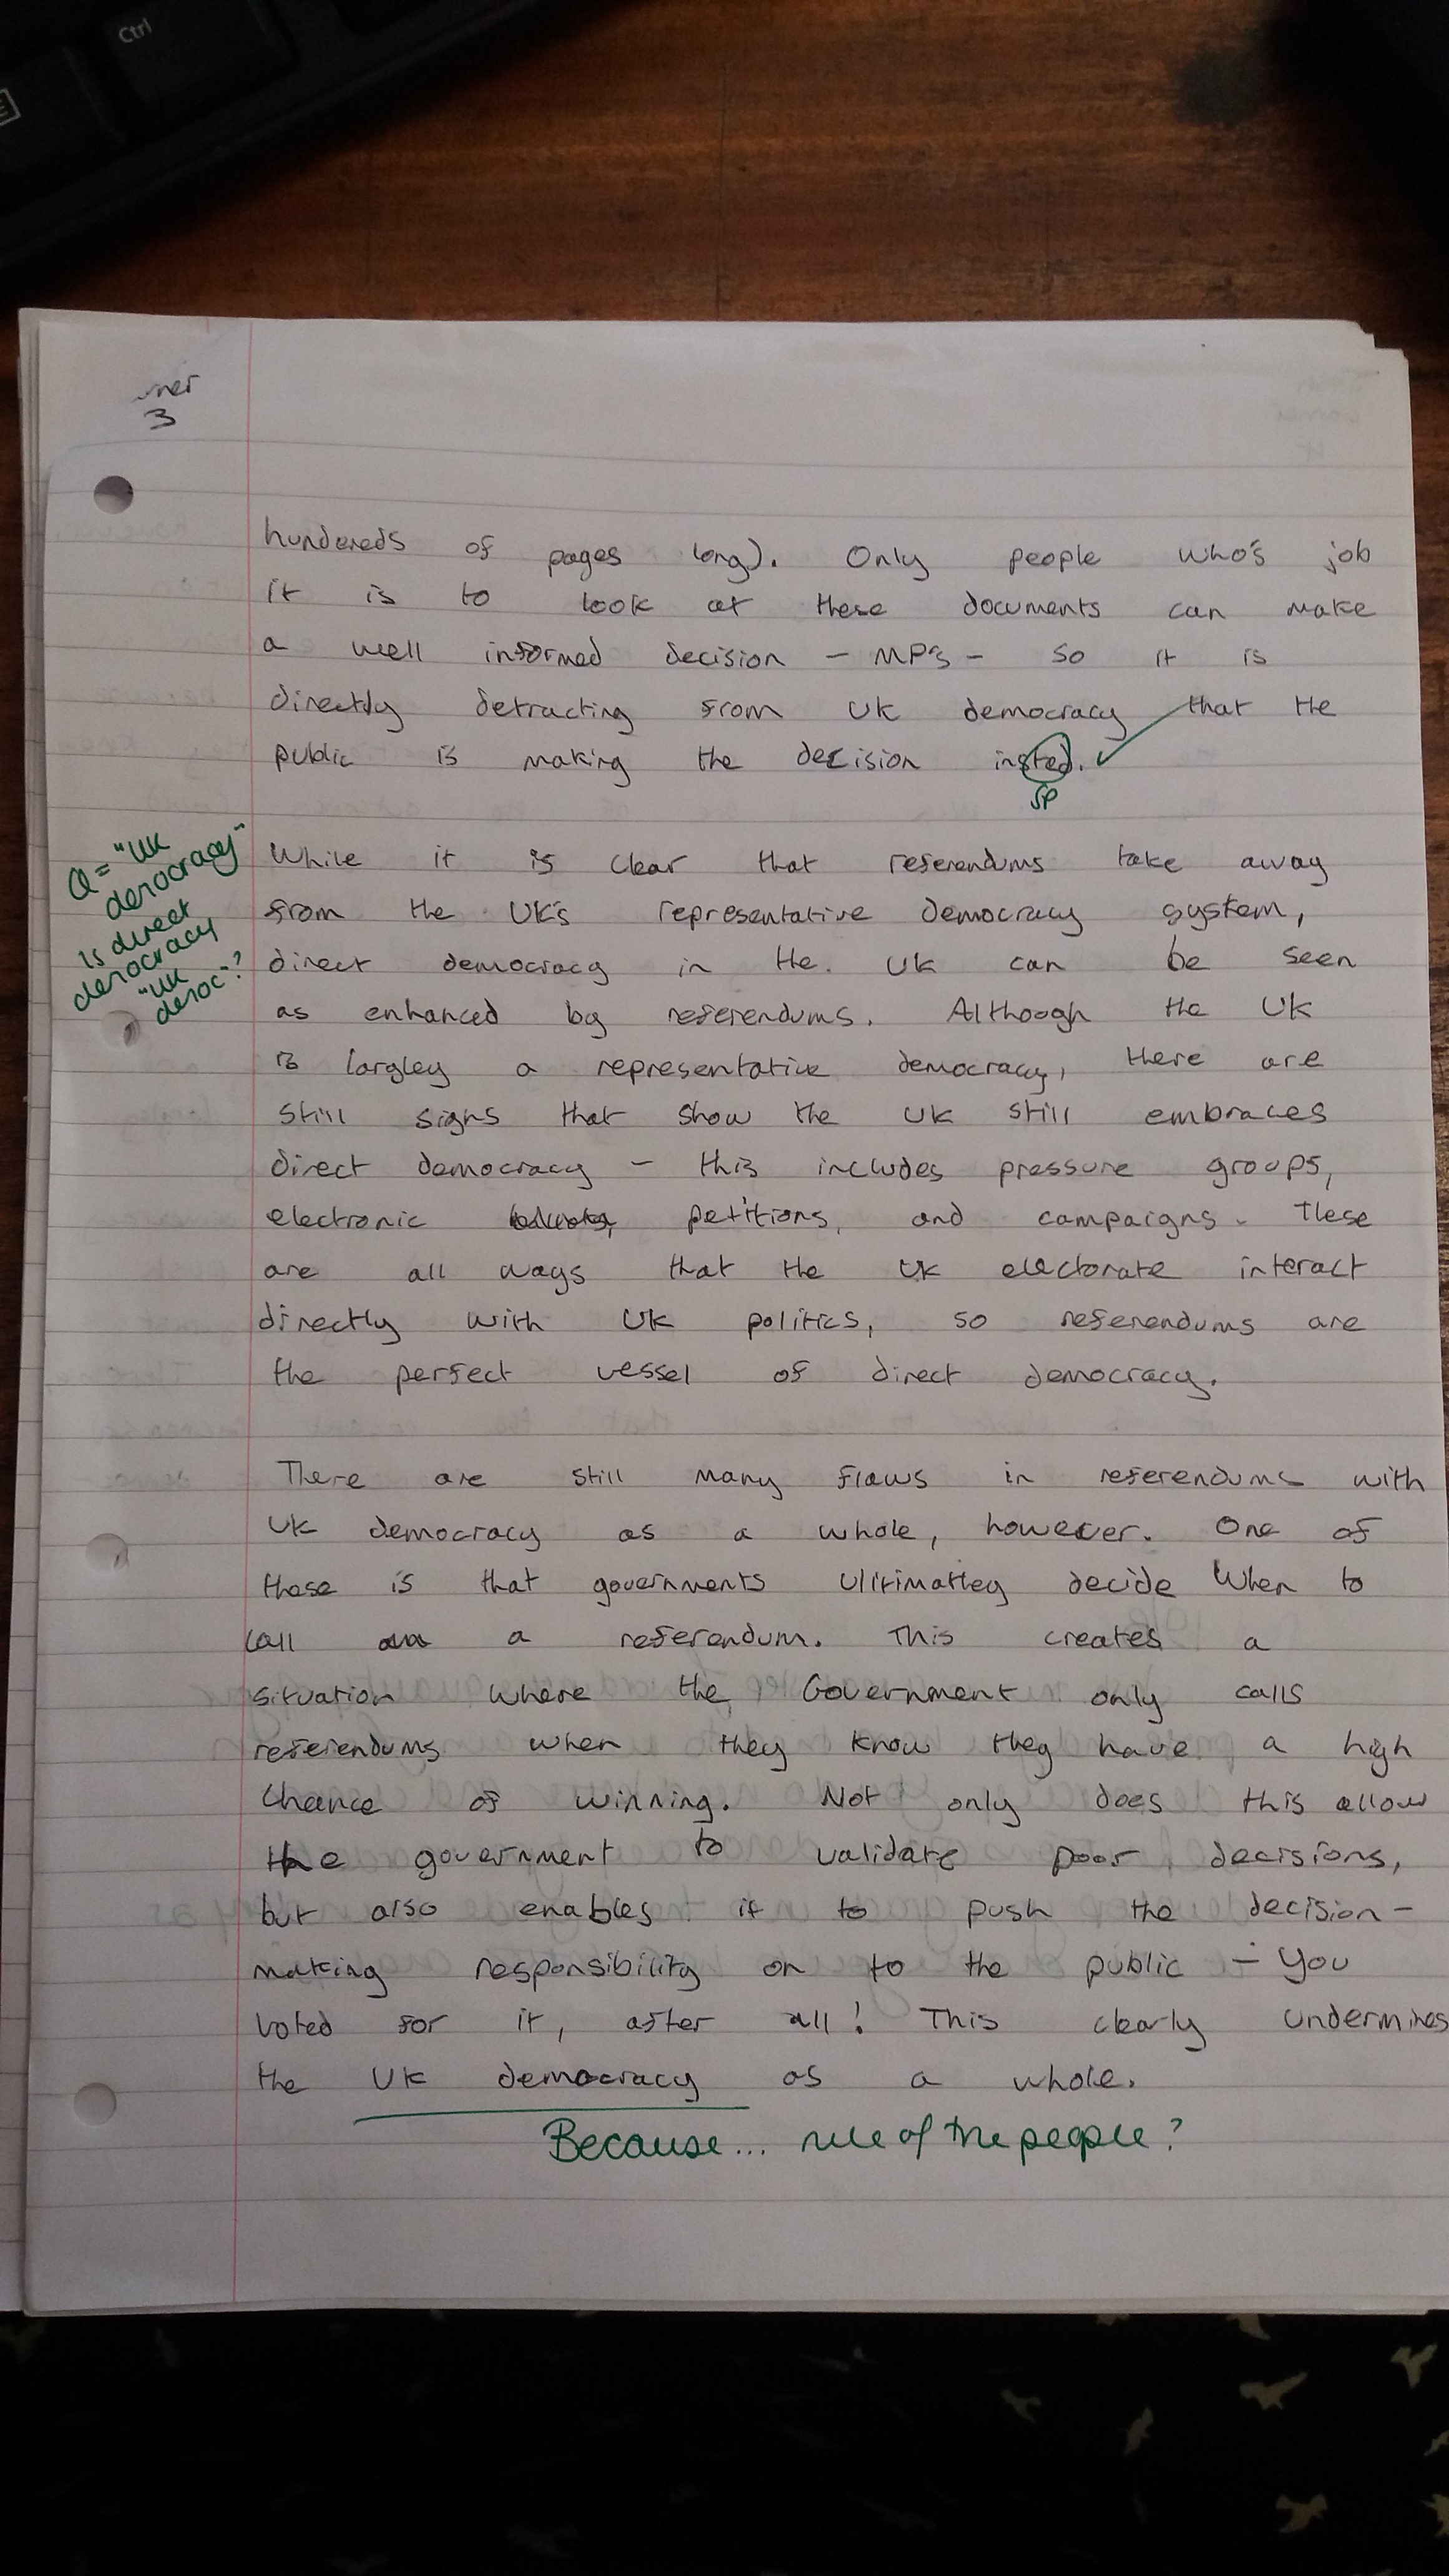 Ctrl
ner
3
hundereds of pages long). Only people who's job
it is to look at these documents can make
a well informed decision - MP's - so it is
directly detracting from UK democracy that the
public is making the decision insted.
SP
Q = "UK
democracy"
is direct
democracy
"UK
democ"?
While it is clear that referendums take away
from the UK's representative democracy system,
direct democracy in the UK can be seen
as enhanced by referendums. Although the UK
is largley a representative democracy, there are
still signs that show the UK still embraces
direct democracy - this includes pressure groups,
electronic petitions, and campaigns. These
are all ways that the UK electorate interact
directly with UK politics, so referendums are
the perfect vessel of direct democracy.
There are still many flaws in referendums with
UK democracy as a whole, however. One of
these is that governments ulitimatley decide when to
call a referendum. This creates a
situation where the Government only calls
referendums when they know they have a high
chance of winning. Not only does this allow
the government to validate poor decisions,
but also enables it to push the decision-
making responsibility on to the public - you
voted for it, after all! This clearly undermines
the UK democracy as a whole.
Because... rule of the people?